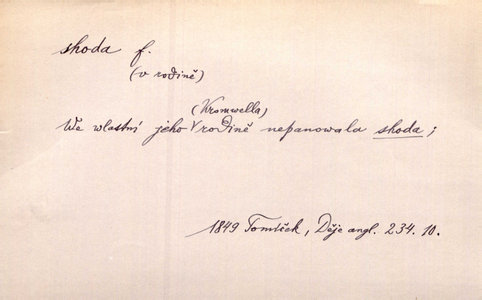 shoda f.
(v rodině)
(Kromwella)
We wlastní jeho V rodině nepanowala shoda;
1849 Tomíček, Děje angl. 234. 10.